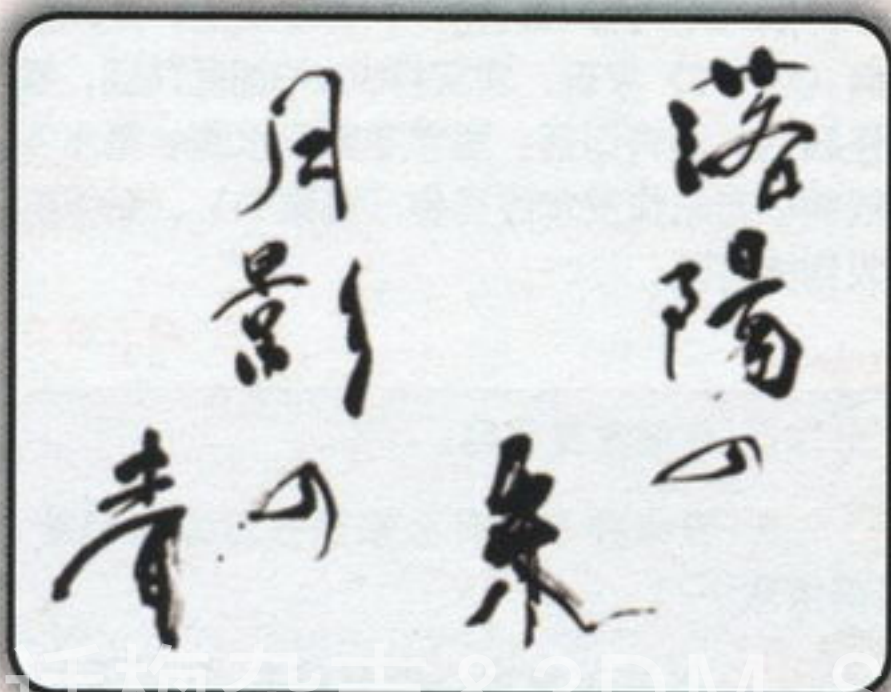 落陽の
朱
月影の
青